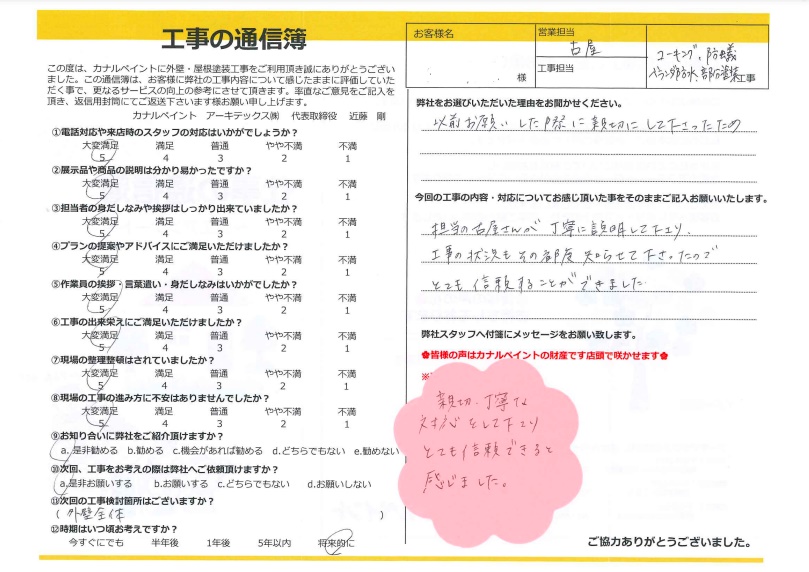 工事の通信簿
この度は、カナルペイントに外壁・屋根塗装工事をご利用頂き誠にありがとうござい
ました。この通信簿は、お客様に弊社の工事内容について感じたままに評価していた
だく事で、更なるサービスの向上の参考にさせて頂きます。率直なご意見をご記入を
頂き、返信用封筒にてご返送下さいます様お願い申し上げます。
カナルペイント アーキテックス㈱ 代表取締役 近藤 剛
①電話対応や来店時のスタッフの対応はいかがでしょうか?
大変満足 満足 普通 やや不満 不満
5 4 3 2 1
②展示品や商品の説明は分かり易かったですか?
大変満足 満足 普通 やや不満 不満
5 4 3 2 1
③担当者の身だしなみや挨拶はしっかり出来ていましたか?
大変満足 満足 普通 やや不満 不満
5 4 3 2 1
④プランの提案やアドバイスにご満足いただけましたか?
大変満足 満足 普通 やや不満 不満
5 4 3 2 1
⑤作業員の挨拶・言葉遣い・身だしなみはいかがでしたか?
大変満足 満足 普通 やや不満 不満
5 4 3 2 1
⑥工事の出来栄えにご満足いただけましたか?
大変満足 満足 普通 やや不満 不満
5 4 3 2 1
⑦現場の整理整頓はされていましたか?
大変満足 満足 普通 やや不満 不満
5 4 3 2 1
⑧現場の工事の進み方に不安はありませんでしたか?
大変満足 満足 普通 やや不満 不満
5 4 3 2 1
⑨お知り合いに弊社をご紹介頂けますか?
a.是非勧める b.勧める c.機会があれば勧める d.どちらでもない e.勧めない
⑩次回、工事をお考えの際は弊社へご依頼頂けますか?
a.是非お願いする b.お願いする c.どちらでもない d.お願いしない
⑪次回の工事検討箇所はございますか?
( 外壁全体 )
⑫時期はいつ頃お考えですか?
今すぐにでも 半年後 1年後 5年以内 将来的に
お客様名
様
営業担当
古屋
工事担当
コーキング、防蟻
ベランダ防水、部分塗装工事
弊社をお選びいただいた理由をお聞かせください。
以前お願いした際に親切にして下さったため
今回の工事の内容・対応についてお感じ頂いた事をそのままご記入お願いいたします。
担当の古屋さんが丁寧に説明して下さり、
工事の状況もその都度知らせて下さったので
とても信頼することができました
弊社スタッフへ付箋にメッセージをお願い致します。
✿皆様の声はカナルペイントの財産です店頭で咲かせます✿
※
親切、丁寧な
対応をして下さり
とても信頼できると
感じました。
ご協力ありがとうございました。